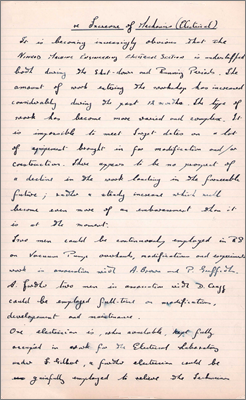 Increase of Mechanics (Electrical)
It is becoming increasingly obvious that the
Nimrod Magnet Engineering Electrical Section is understaffed
both during the Shut-down and Running Periods. The
amount of work entering the workshop has increased
considerably during the past 12 months. The type of
work has become more varied and complex. It
is impossible to meet target dates on a lot
of equipment brought in for modification and/or
construction. There appears to be no prospect of
a decline in the work load in the foreseeable
future; rather a steady increase which will
become even more of an embarrassment than it
is at the moment.
Two men could be continuously employed in R8
on Vacuum Pump overhauls, modifications and experimental
work in association with A. and P. Griffiths.
A further two men in association with D.
could be employed full time on modification,
development and maintenance.
One electrician is, when available, kept fully
occupied in work for the Electrical Laboratory
under S. Gilbert, a further electrician could be
gainfully employed to relieve the